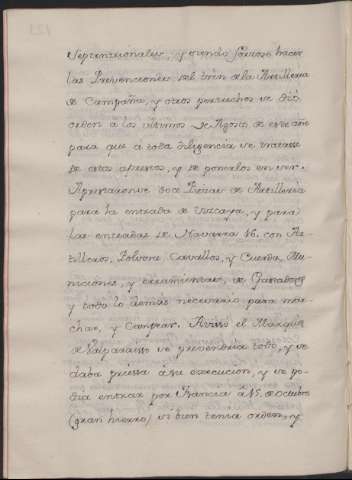 Septentrionales, y siendo forzoso hacer
las Prevenciones del tren de la Artilleria
de Campaña, y otros pertrechos se dió
orden á los ultimos de Agosto de este año
para que á toda diligencia se tratasse
de estos aprestos, y de ponerlos en ser.
Aprestaronse doce Piezas de Artilleria
para la entrada de Vizcaya, y para
las entradas de Navarra 16. con Ar-
tilleros, Polvora, Cavallos, y Cuerda, Mu-
niciones, y erramientas, de Gastadores
y todo lo demás necesario para mar-
char, y Campear. Avisó el Marqués
de Valparaisso se prevendria todo, y se
daba priessa á su execucion, y se po-
dia entrar por Francia á 15. de octubre
(gran hierro) si bien tenia orden, y